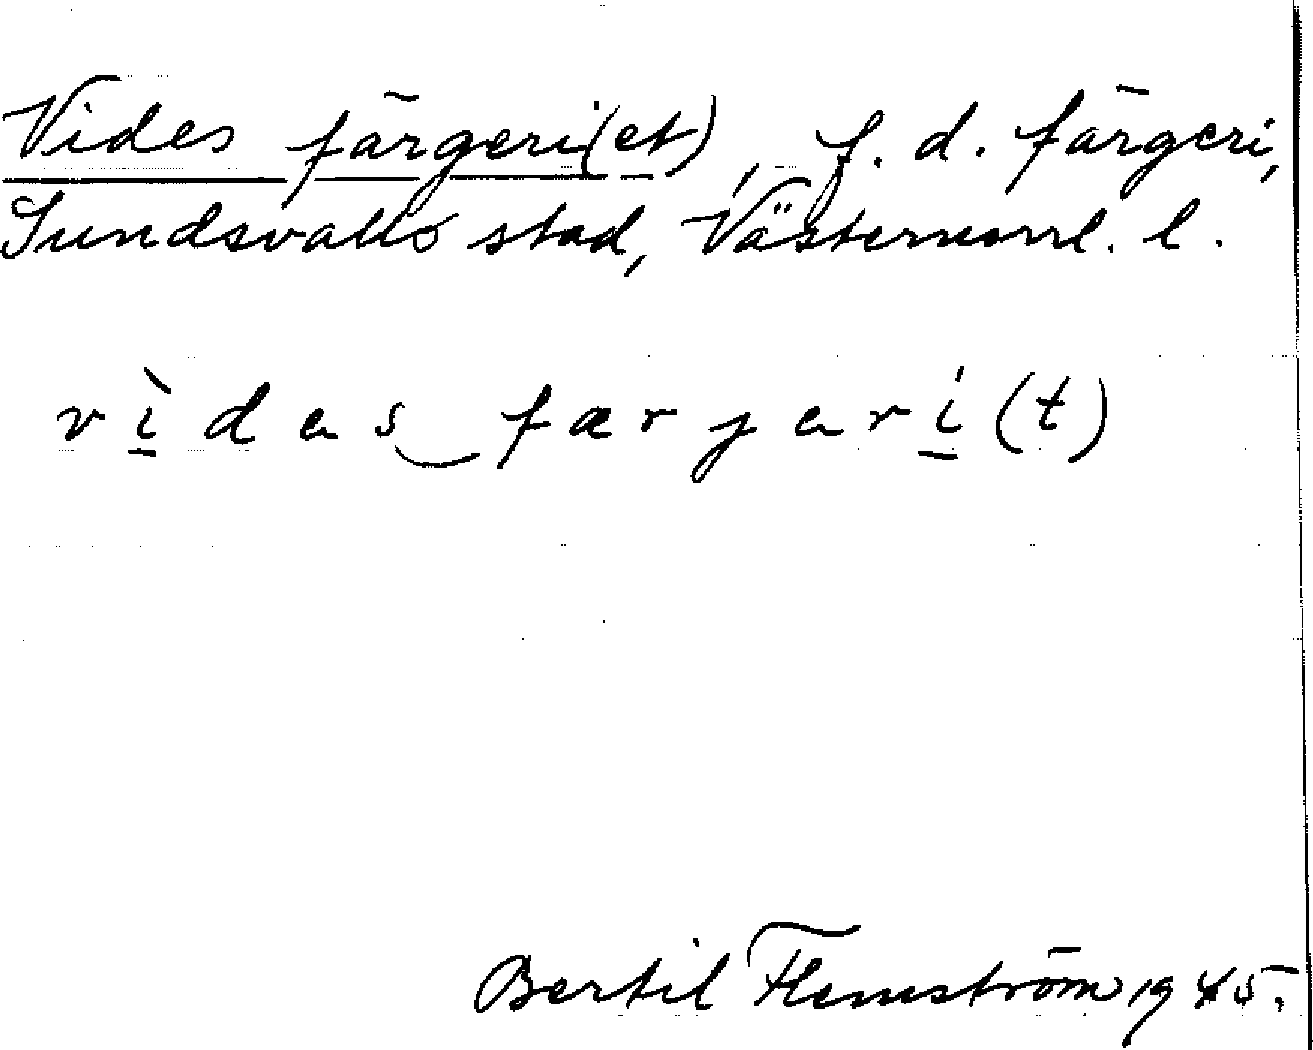 Vides färgeri(et), f. d. färgeri,
Sundsvalls stad, Västernorrl. l.
vìdes färjerí(t)
Bertil Flemström 1945.